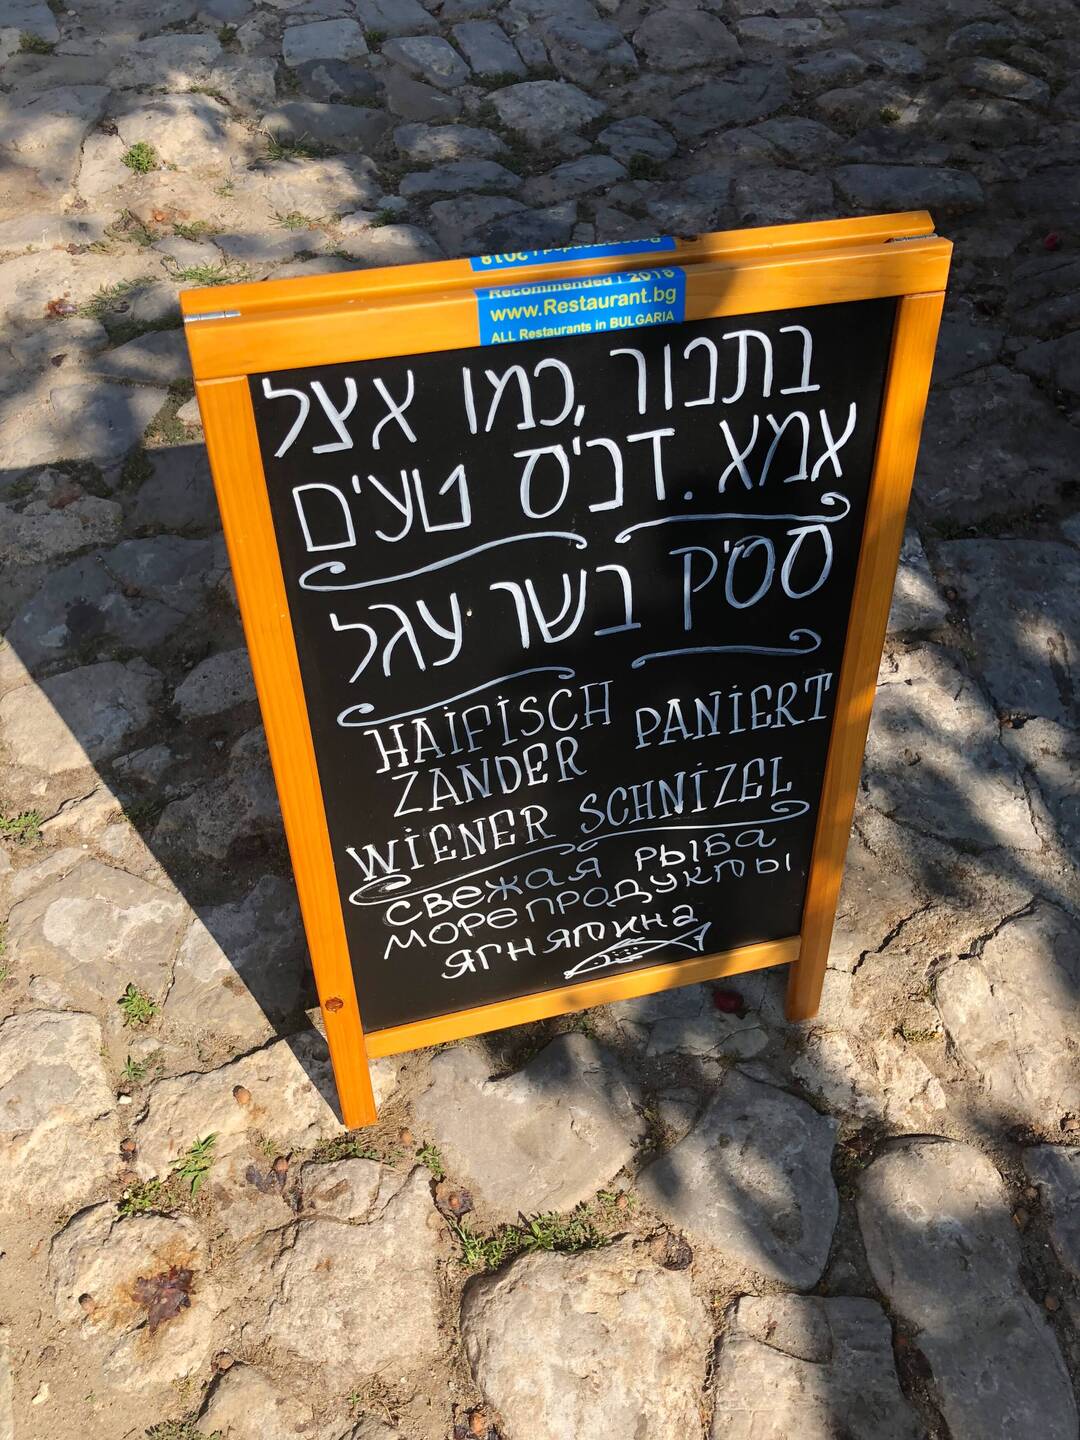 Recommended! 2018
Recommended! 2018
www.Restaurant.bg
ALL Restaurants in BULGARIA
בתנור, כמו אצל
אמא. דגים טעים
סטייק בשר עגל
HAIFISCH PANIERT
ZANDER
WIENER SCHNIZEL
СВЕЖАЯ РЫБА
МОРЕПРОДУКТЫ
ЯГНЯТИНА